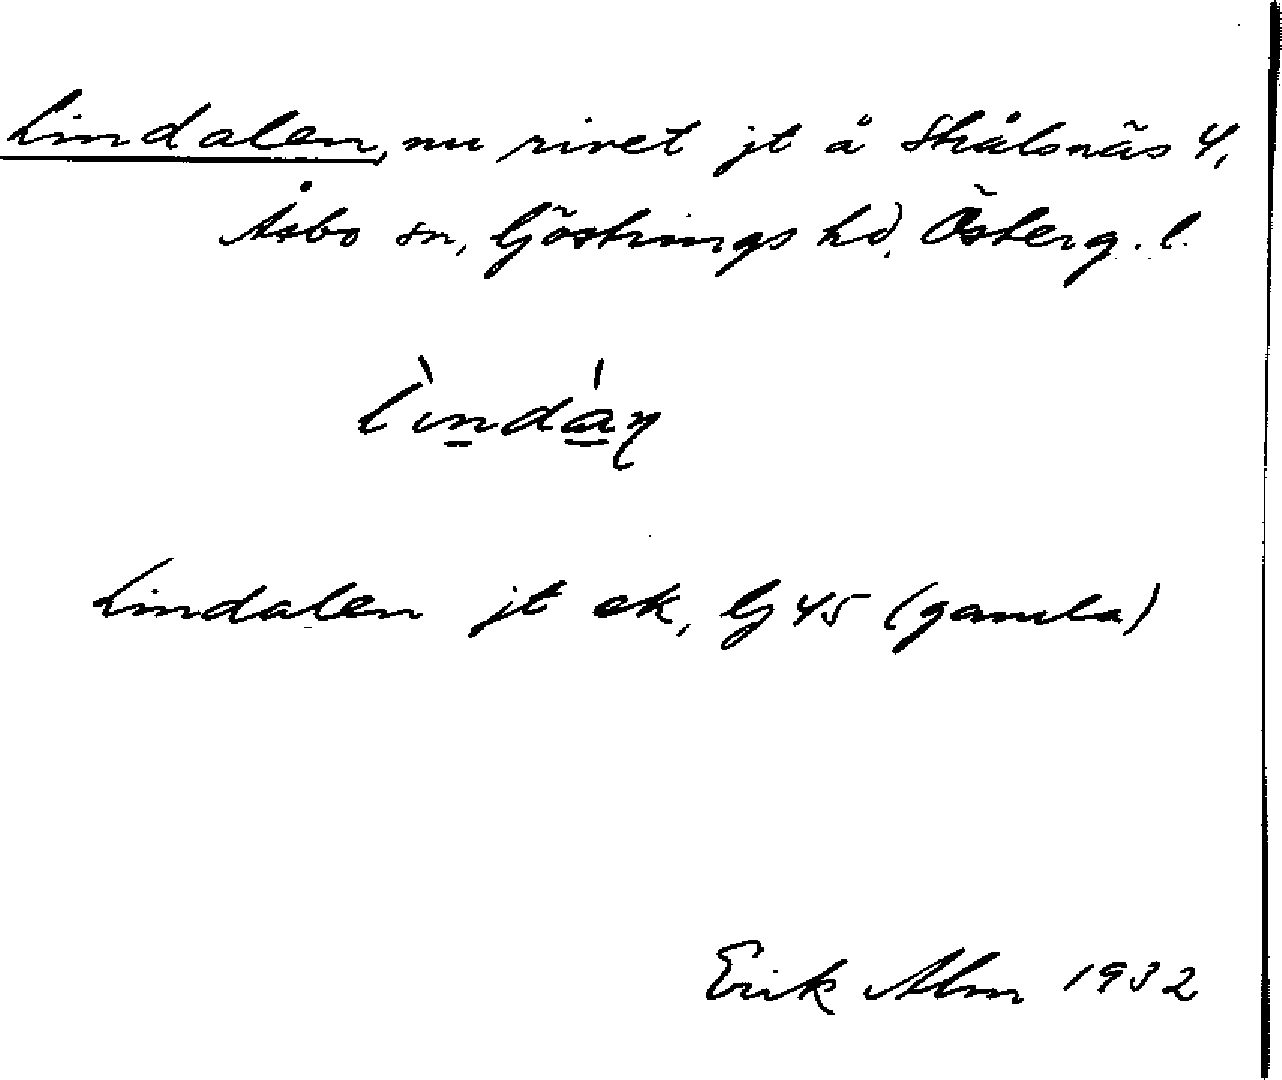 Lindalen, nu rivet jt å Skålsnäs 4,
Åsbo sn, Göstrings hd, Österg. l.
lìndáɳ
Lindalen jt ek, Gj 45 (gamla)
Erik Alm 1932